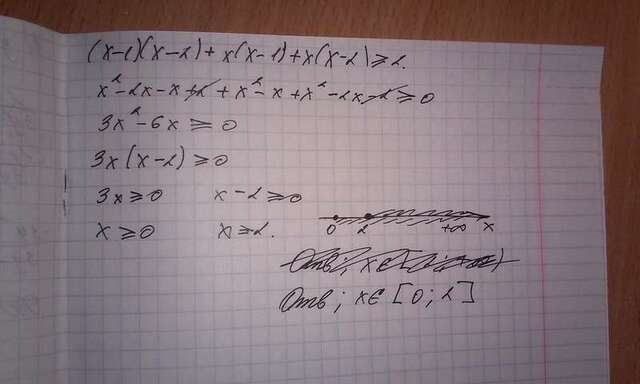 (x-1)(x-2)+x(x-1)+x(x-2)≥2.
x²-2x-x+2+x²-x+x²-2x-2≥0
3x²-6x≥0
3x(x-2)≥0
3x≥0 x-2≥0
x≥0 x≥2.
0 2 +∞ x
Отв; x∈[0;2]